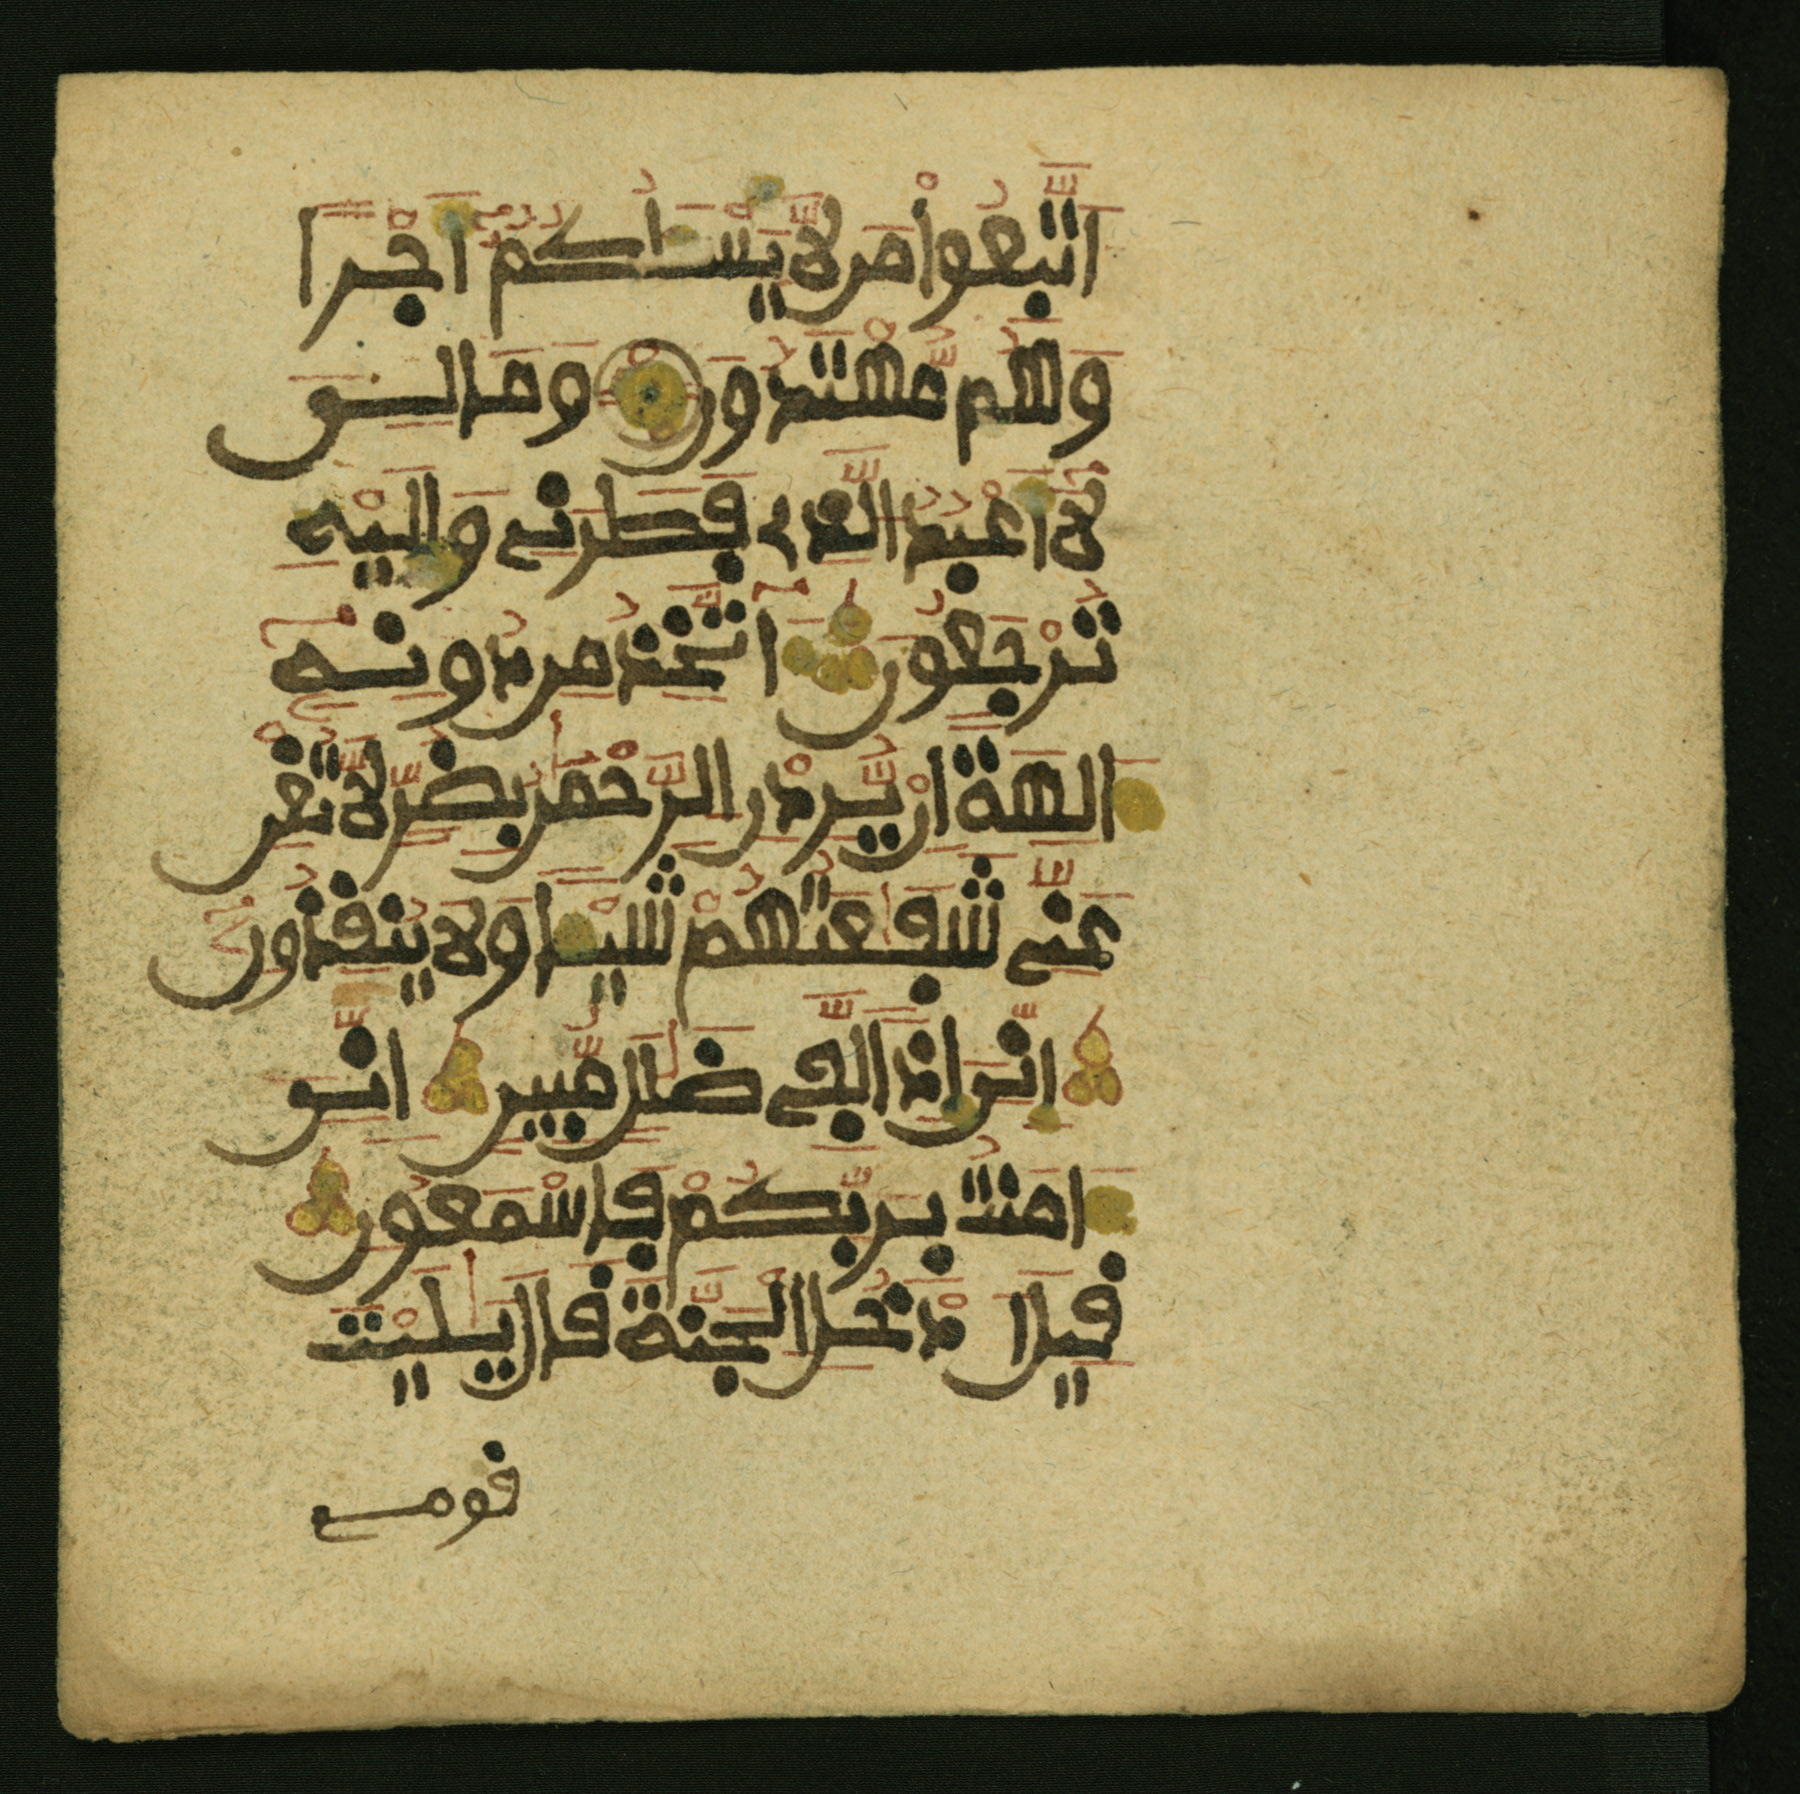 اتَّبِعُواْ مَن لاَّ يَسْـَٔلُكُمُۥٓ أَجْرًا
وَهُم مُّهْتَدُونَ وَمَا لِىَ
لَآ أَعْبُدُ الَّذِے فَطَرَنِے وَإِلَيْهِ
تُرْجَعُونَ ءَآتَّخِذُ مِن دُونِهِۦٓ
ءَالِهَةً اِنْ يُّرِدْنِ الرَّحْمَٰنُ بِضُرٍّ لاَّ تُغْنِ
عَنِّے شَفَٰعَتُهُمْ شَيْـًٔا وَلاَ يُنقِذُونِۦٓ
إِنِّىَ إِذًا لَّفِے ضَلَٰلٍ مُّبِينٍ إِنِّىَ
ءَامَنتُ بِرَبِّكُمْ فَاسْمَعُونِ
قِيلَ ادْخُلِ الْجَنَّةَ قَالَ يَٰلَيْتَ
قومے